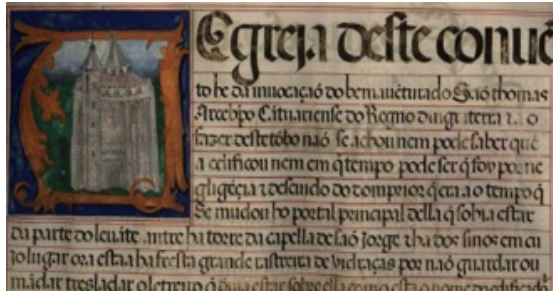 A Egreja deste convẽ
to he da invocaçaõ do bem avẽturado Saõ thomas
Arcebp̃o Cãtuariense do Regno dinglaterra z ao
fazer deste tõbo naõ se achou nem pode saber quẽ
a edificou nem em q̃ tempo pode ser q̃ foy por ne
gligẽçia z descuido do dom prior q̃ era ao tempo q̃
Se mudou ho portal principal della q̃ sohia estar
da parte do levãte antre ha torre da capella de saõ Jorge z ha dos sinos em cu
jo lugar ora esta a ha fresta grande rastreira de vidraças por naõ guardar ou
mãdar tresladar o letreiro q̃ avia estar sobre ella como esta o nome do edificador